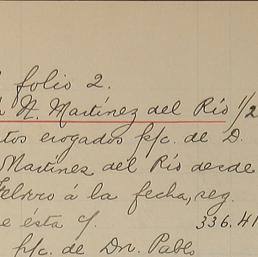 folio 2.
N. Martínez del Río 1/2
tos erogados p/c. de D.
Martínez del Río desde
Febrero á la fecha, seg.
e ésta c/. 336.41
p/c. de Dn. Pablo